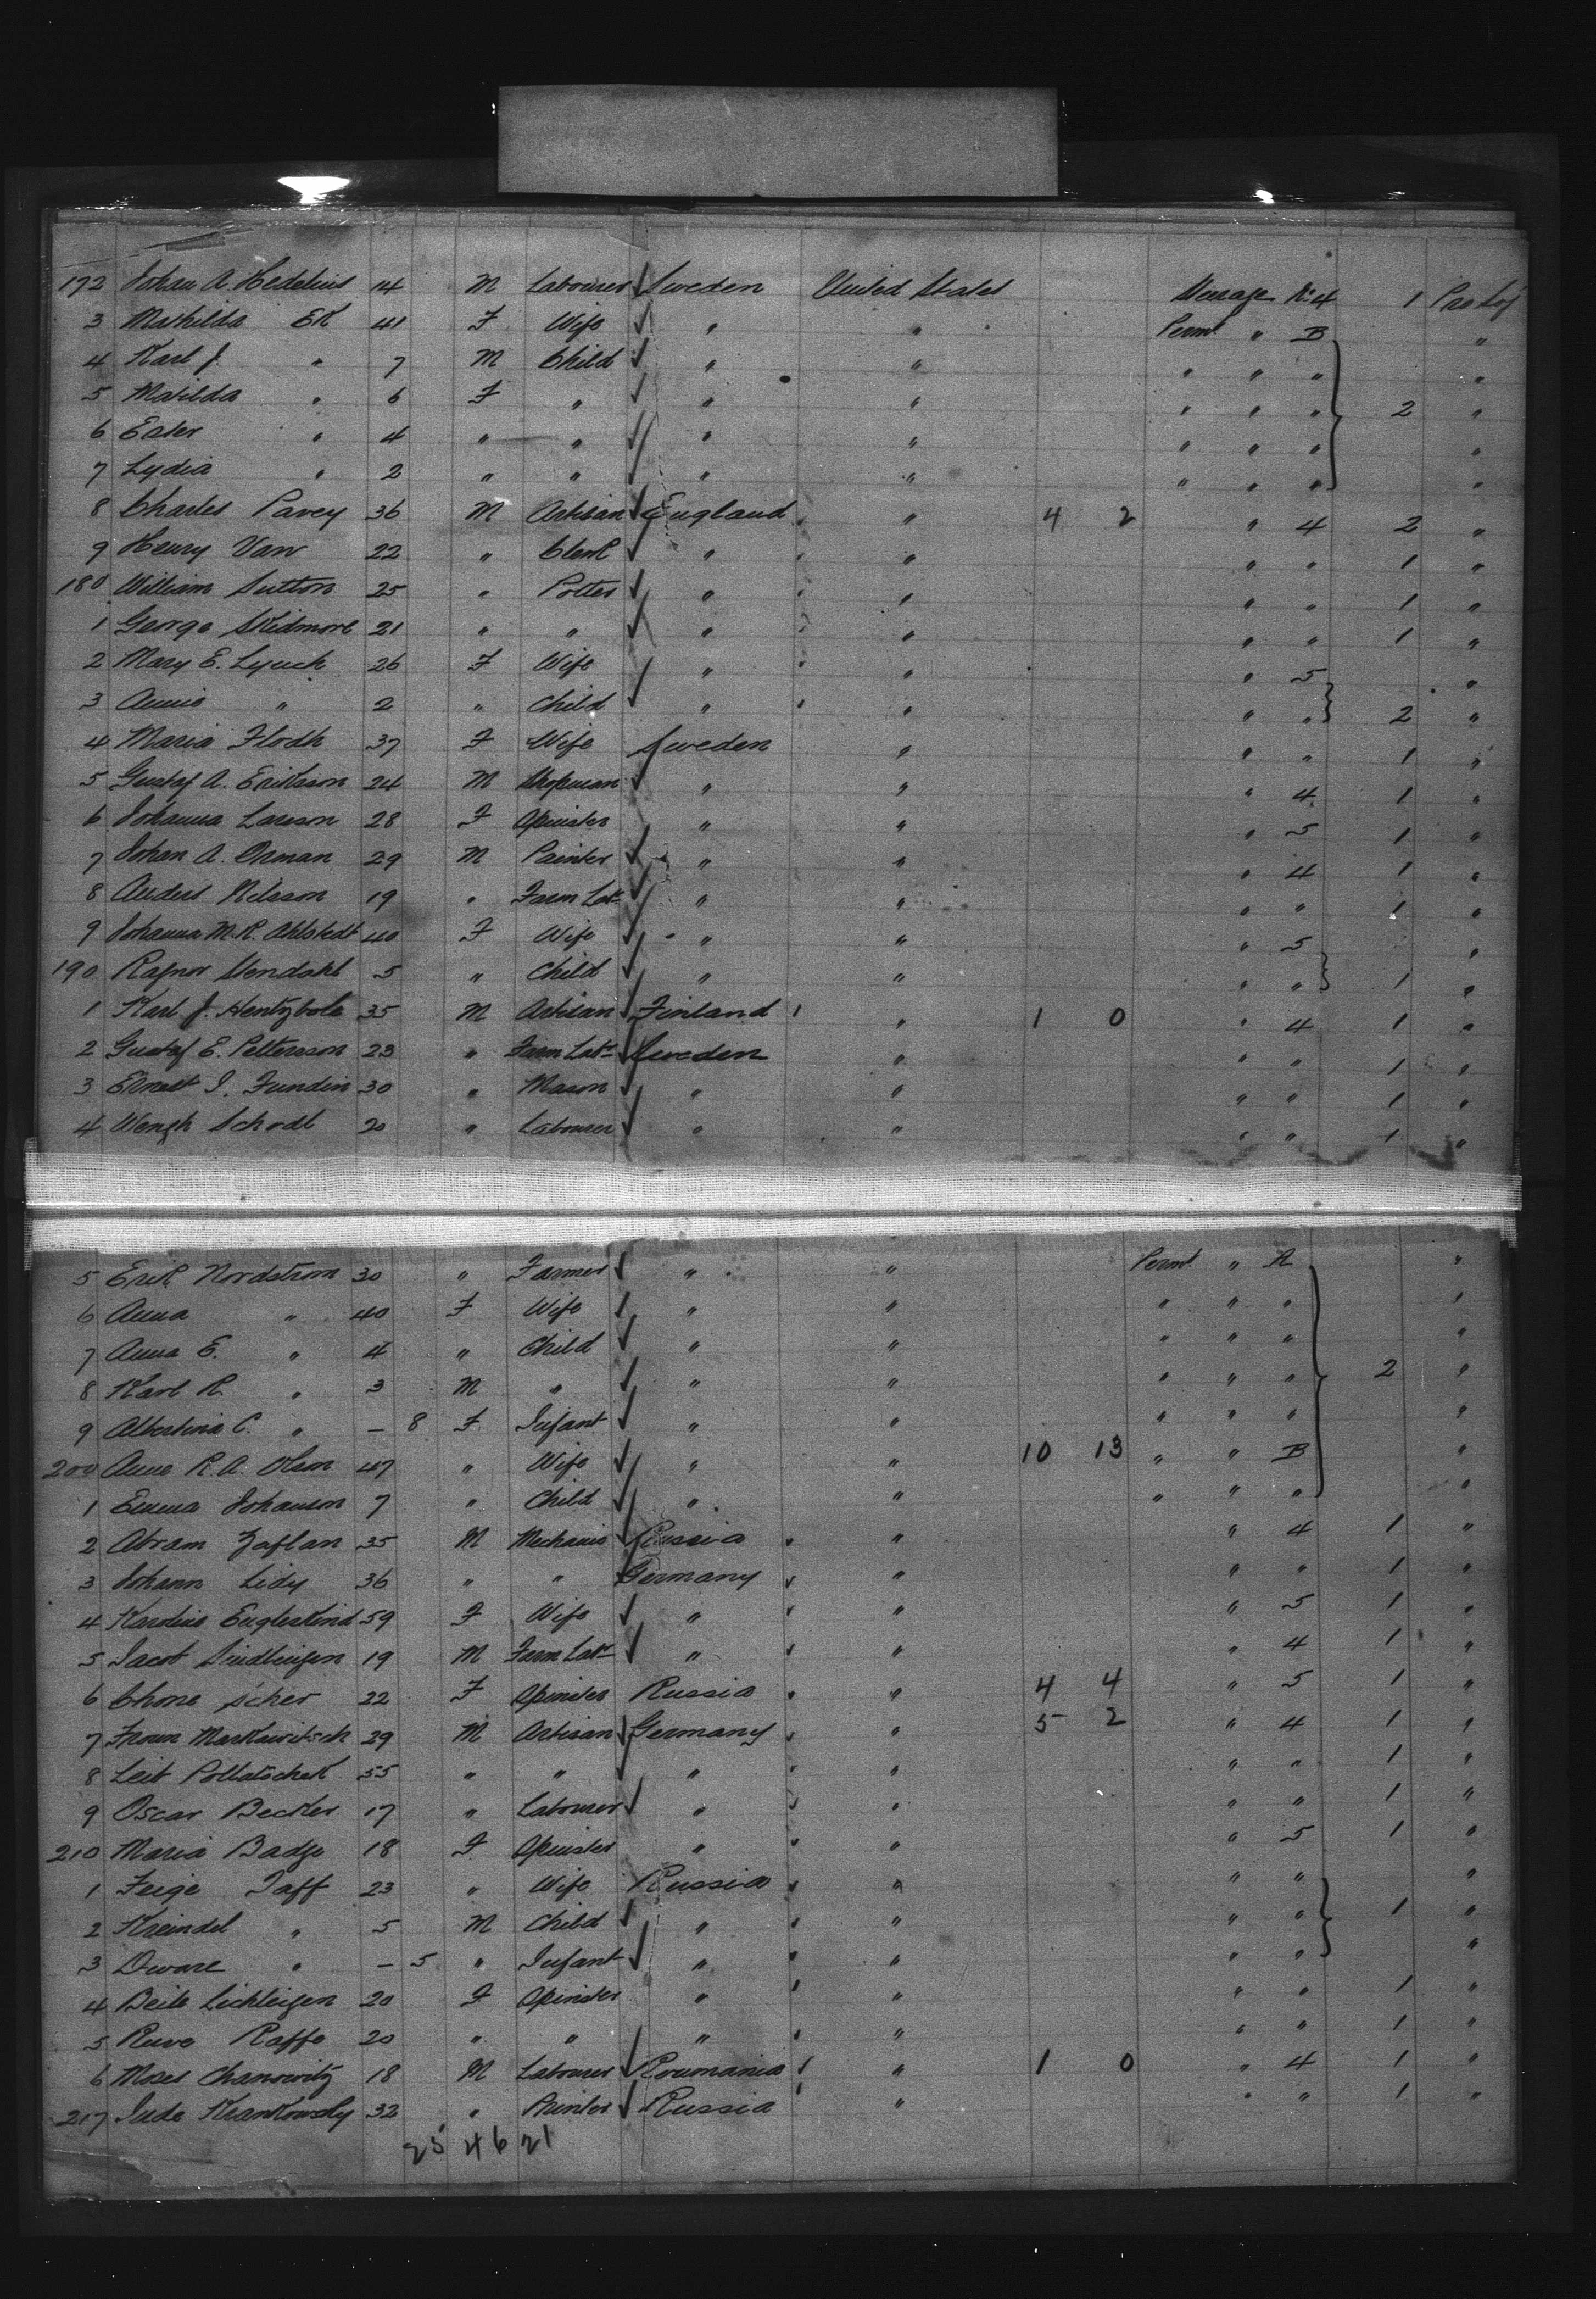 172 Johan A. Hedelius 14 M Labourer Sweden United States Steerage No 4 1 Pro Log
3 Mathilda Ek 41 F Wife " " Permt " B "
4 Karl J. " 7 M Child " " " " " "
5 Matilda " 6 F " " " " " " 2 "
6 Ester " 4 " " " " " " " "
7 Lydia " 2 " " " " " " " "
8 Charles Pavey 36 M Artisan England " 4 2 " 4 2 "
9 Henry Van 22 " Clerk " " " " 1 "
180 William Sutton 25 " Potter " " " " 1 "
1 George Skidmore 21 " " " " " " 1 "
2 Mary E. Lynch 26 F Wife " " " 5 "
3 Annie " 2 " Child " " " " 2 "
4 Maria Flodh 37 F Wife Sweden " " " 1 "
5 Gustaf A. Eriksson 24 M Shopman " " " 4 1 "
6 Johanna Larsson 28 F Spinster " " " 5 1 "
7 Johan A. Orman 29 M Painter " " " 4 1 "
8 Anders Nilsson 19 " Farm Labr " " " " 1 "
9 Johanna M.R. Ahlstedt 40 F Wife " " " 5 "
190 Ragnar Stendahl 5 " Child " " " " 1 "
1 Karl J. Hentzbole 35 M Artisan Finland " 1 0 " 4 1 "
2 Gustaf E. Pettersson 23 " Farm Labr Sweden " " " 1 "
3 Ernest I. Fundin 30 " Mason " " " " 1 "
4 Schodl 20 " Labourer " " " " 1 "
5 Erik Nordstrom 30 " Farmer " " Permt " A "
6 Anna " 40 F Wife " " " " " "
7 Anna E. " 4 " Child " " " " " "
8 Karl R. " 3 M " " " " " " 2 "
9 Albertina C. " — 8 F Infant " " " " " "
200 Anna R.A. Olson 47 " Wife " " 10 13 " " B "
1 Emma Johanson 7 " Child " " " " " "
2 Abram Zaflan 35 M Mechanic Russia " " 4 1 "
3 Johann Lidy 36 " " Germany " " " 1 "
4 Karoline Engleskind 59 F Wife " " " 5 1 "
5 Jacob Sindlingen 19 M Farm Labr " " " 4 1 "
6 Chone Scher 22 F Spinster Russia " 4 4 " 5 1 "
7 Markawitsch 29 M Artisan Germany " 5 2 " 4 1 "
8 Leib Pollatschek 55 " " " " " " 1 "
9 Oscar Becker 17 " Labourer " " " " 1 "
210 Maria Badze 18 F Spinster " " " 5 1 "
1 Feige Taff 23 " Wife Russia " " " "
2 Kreindel " 5 M Child " " " " 1 "
3 Dware " — 5 " Infant " " " " "
4 Beile Lichteigen 20 F Spinster " " " " 1 "
5 Ruve Raffe 20 " " " " " " 1 "
6 Moses Chanowitz 18 M Labourer Roumania " 1 0 " 4 1 "
217 Jude Krankowsky 32 " Painter Russia " " " 1 "
25 46 21